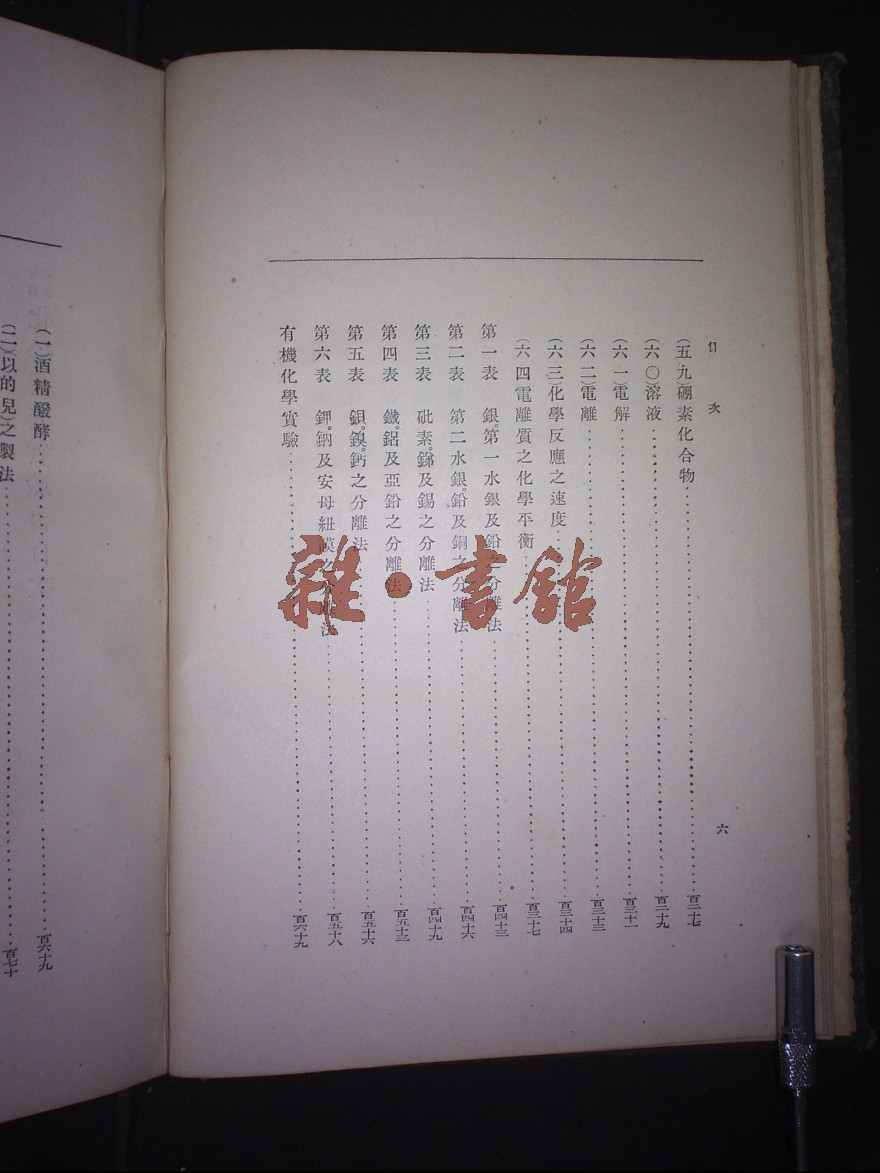 目次
六
(五九)硼素化合物 百二十七
(六〇)溶液 百二十九
(六一)電解 百三十一
(六二)電離 百三十三
(六三)化學反應之速度 百三十四
(六四電離質之化學平衡 百三十七
第一表 銀。第一水銀及鉛之分離法 百四十三
第二表 第二水銀。鉛及銅之分離法 百四十六
第三表 砒素。銻及錫之分離法 百四十九
第四表 鐵。鋁及亞鉛之分離法 百五十三
第五表 鋇。鎳。鈣之分離法 百五十六
第六表 鉀。鈉及安母紐謨之分離法 百五十八
有機化學實驗 百六十九
(一)酒精醱酵 百六十九
(二)以的兒)之製法 百七十
雜·書館